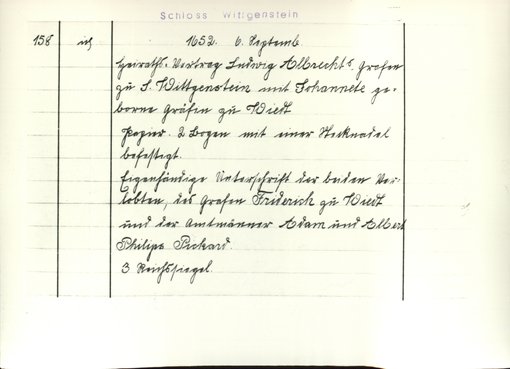 Schloss Wittgenstein
158 ich 1652. 6. Septemb
Heiraths-Vertrag Ludwig Albrecht's. Grafen
zu S. Wittgenstein mit Johannete ge-
borne Gräfin zu Wiedt
Papier. 2 Bogen mit einer Stecknadel
befestigt.
Eigenhändige Unterschrift der beiden Ver-
lobten, des Grafen Friderich zu Wiedt
und der Amtmänner Adam und Albert
Philips
3 Reichssiegel.